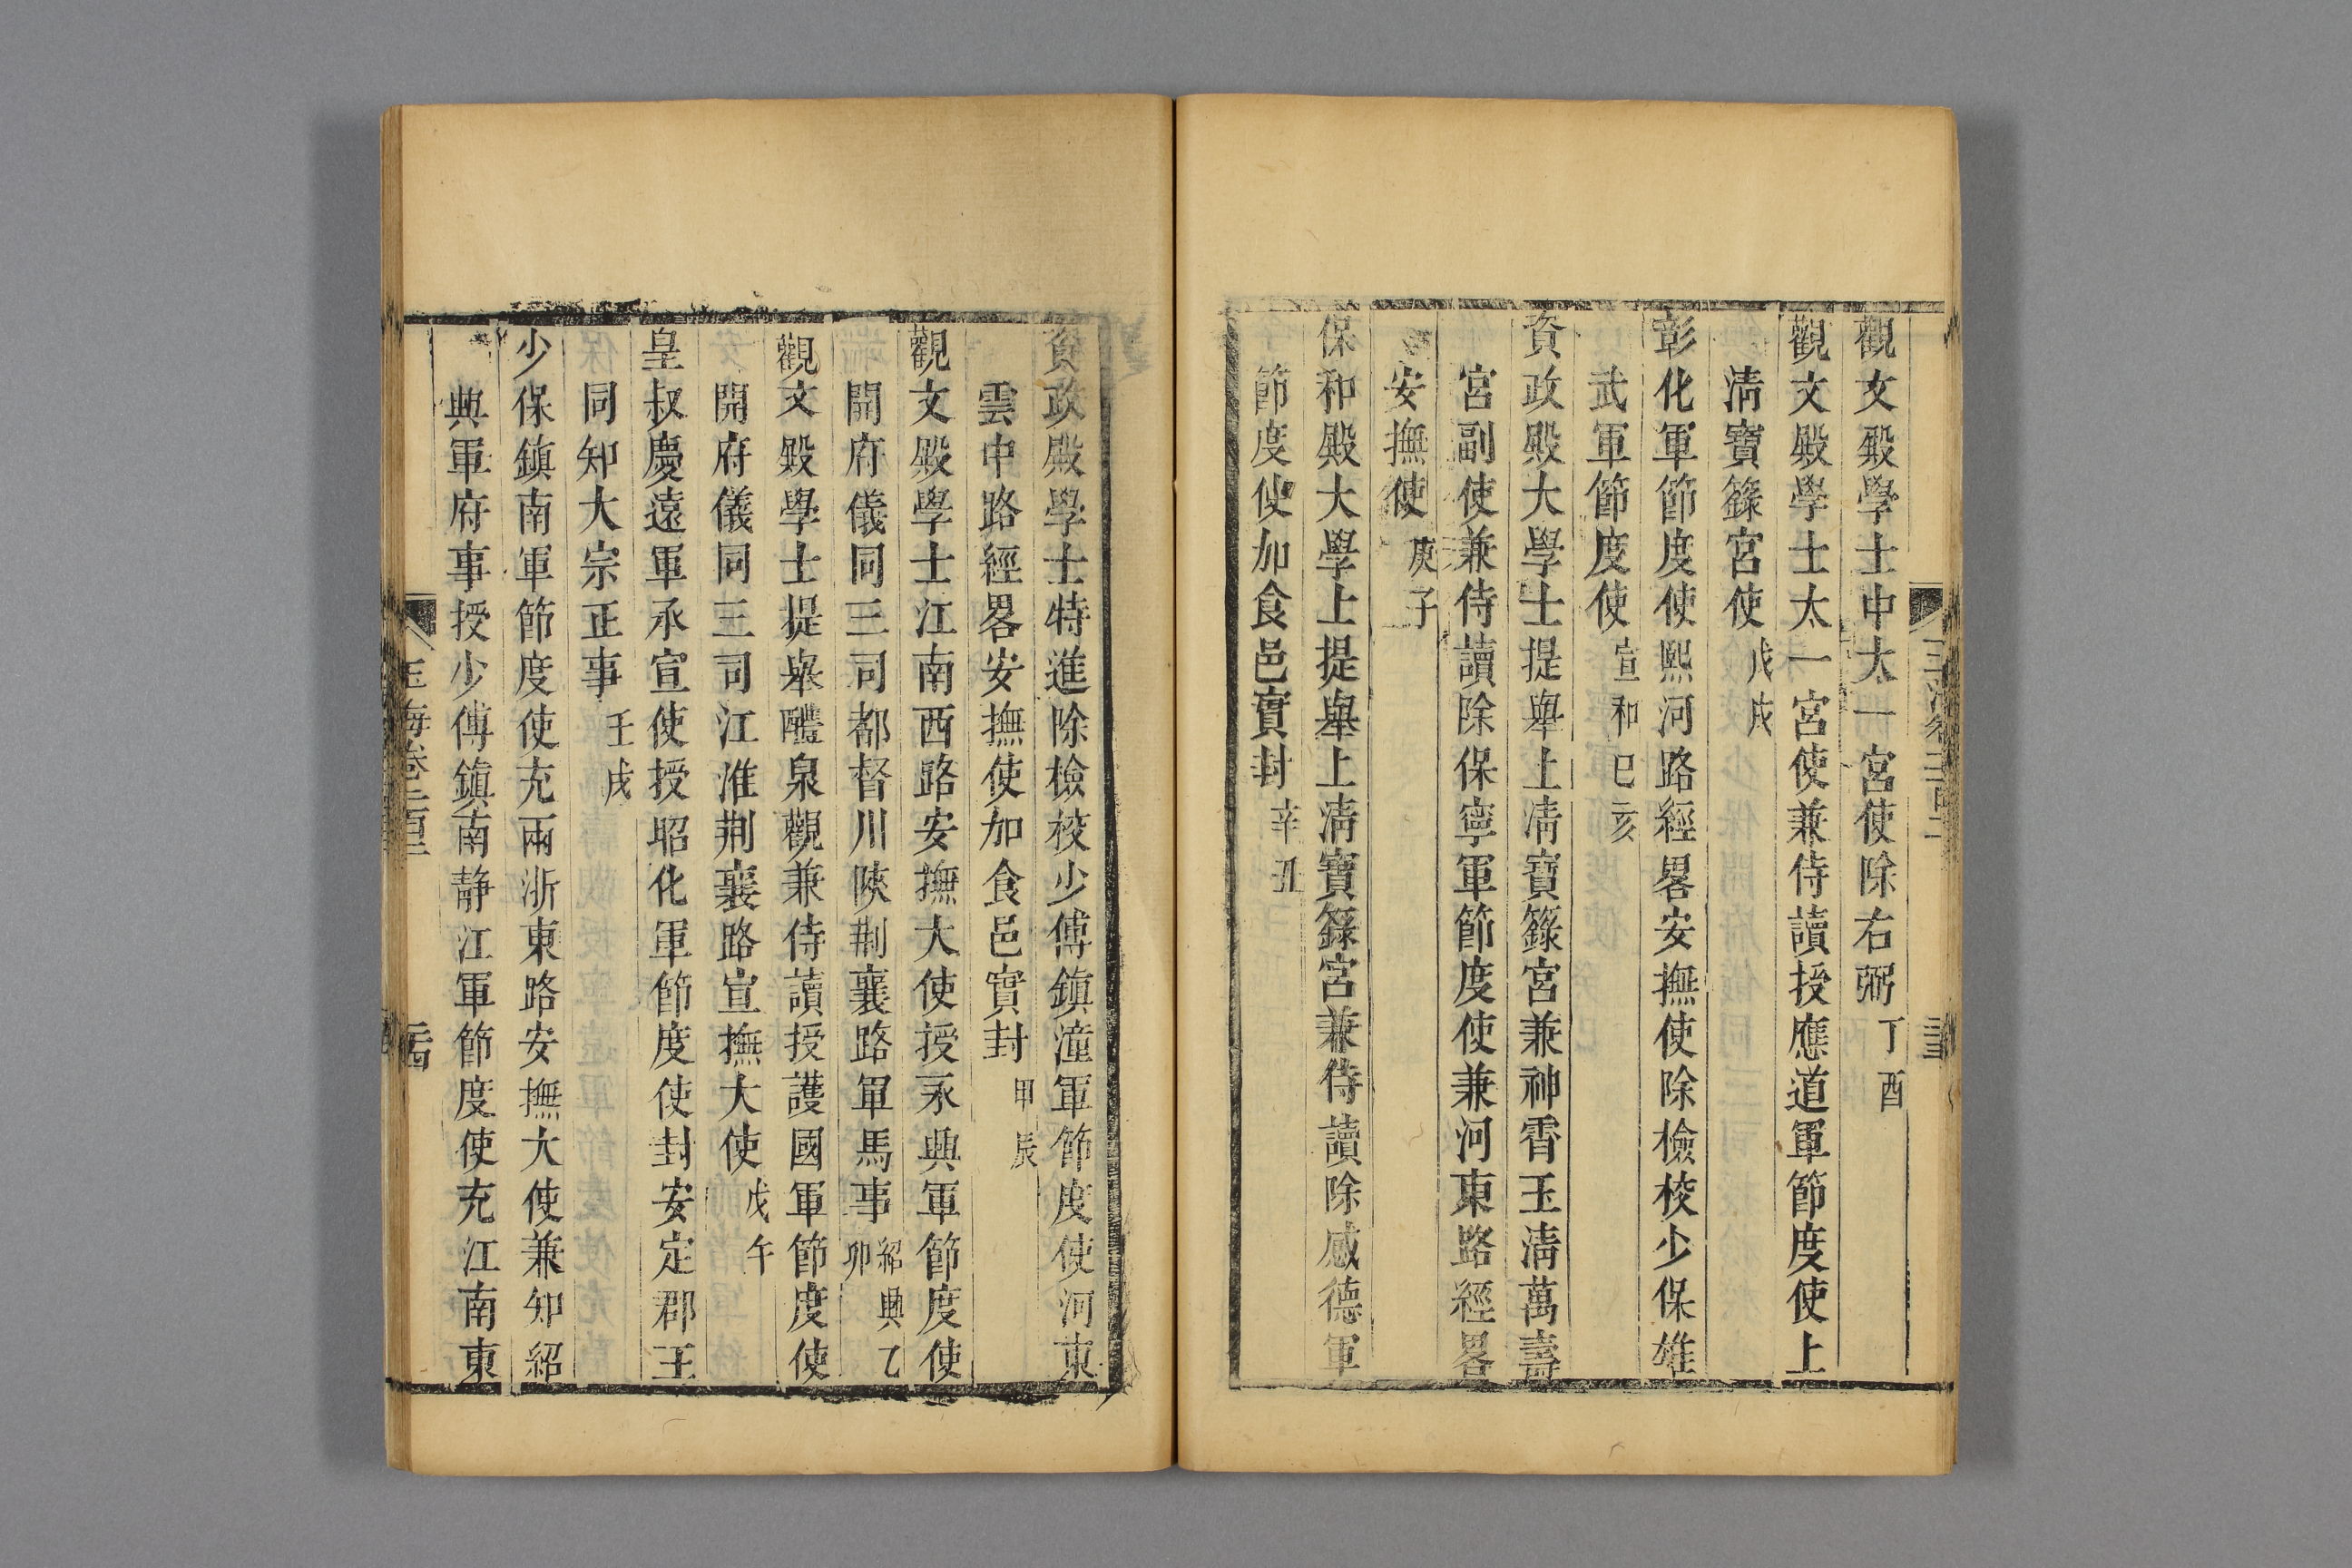 觀文殿學士中太一宮使除右弼丁酉
觀文殿學士太一宮使兼侍讀授應道軍節度使上
清寶籙宮使戊戌
彰化軍節度使熙河路經畧安撫使除檢校少保雄
武軍節度使宣和己亥
資政殿大學士提舉上清寶籙宮兼神霄玉清萬壽
宮副使兼侍讀除保寧軍節度使兼河東路經畧
安撫使庚子
保和殿大學士提舉上清寶籙宮兼侍讀除感德軍
節度使加食邑實封辛丑
資政殿學士特進除檢校少傅鎮潼軍節度使河東
雲中路經畧安撫使加食邑實封甲辰
觀文殿學士江南西路安撫大使授永興軍節度使
開府儀同三司都督川陝荆襄路軍馬事紹興乙卯
觀文殿學士提舉醴泉觀兼侍讀授護國軍節度使
開府儀同三司江淮荆襄路宣撫大使戊午
皇叔慶遠軍承宣使授昭化軍節度使封安定郡王
同知大宗正事壬戌
少保鎮南軍節度使充兩浙東路安撫大使兼知紹
興軍府事授少傅鎮南靜江軍節度使充江南東
玉海卷二百二